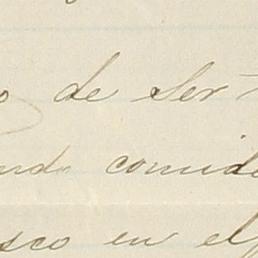 o de ser
ndo comid
sco en el